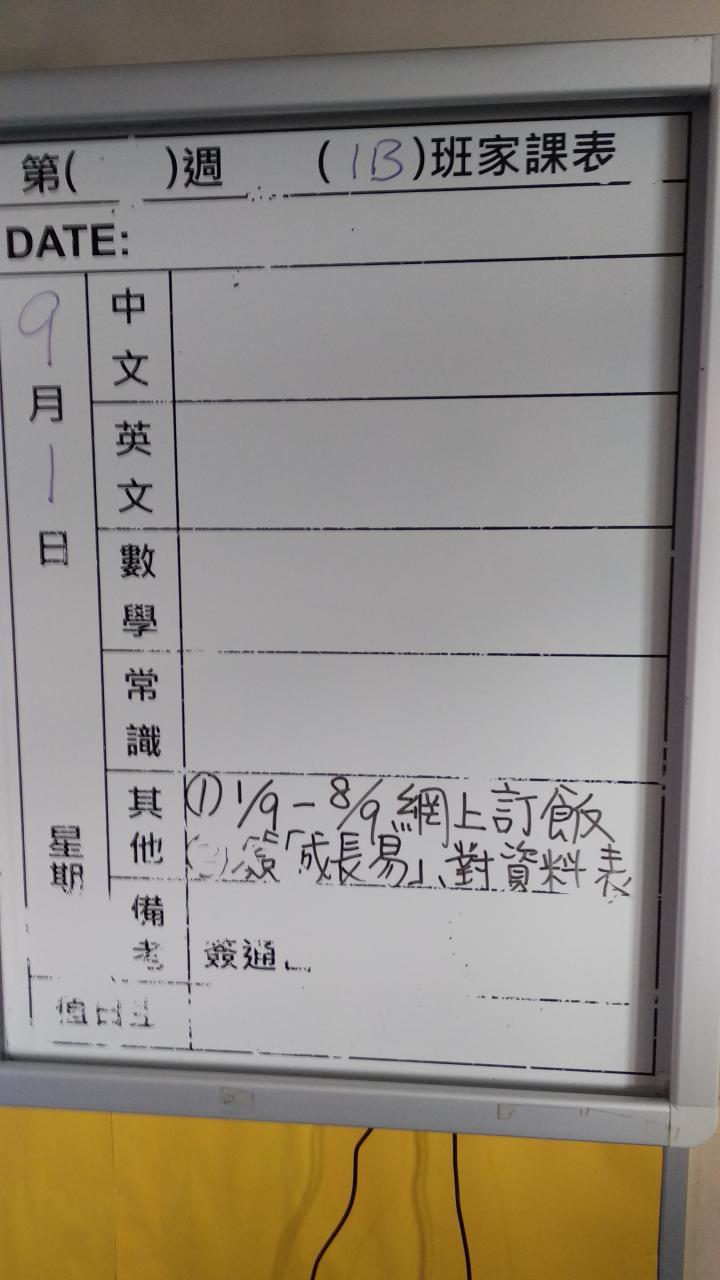 第( )週 (1B)班家課表
DATE:
9月1日
星期
中文
英文
數學
常識
其他
(1) 1/9 - 8/9 網上訂飯
(2) 簽「成長易」、對資料表
備考
簽通
值日生